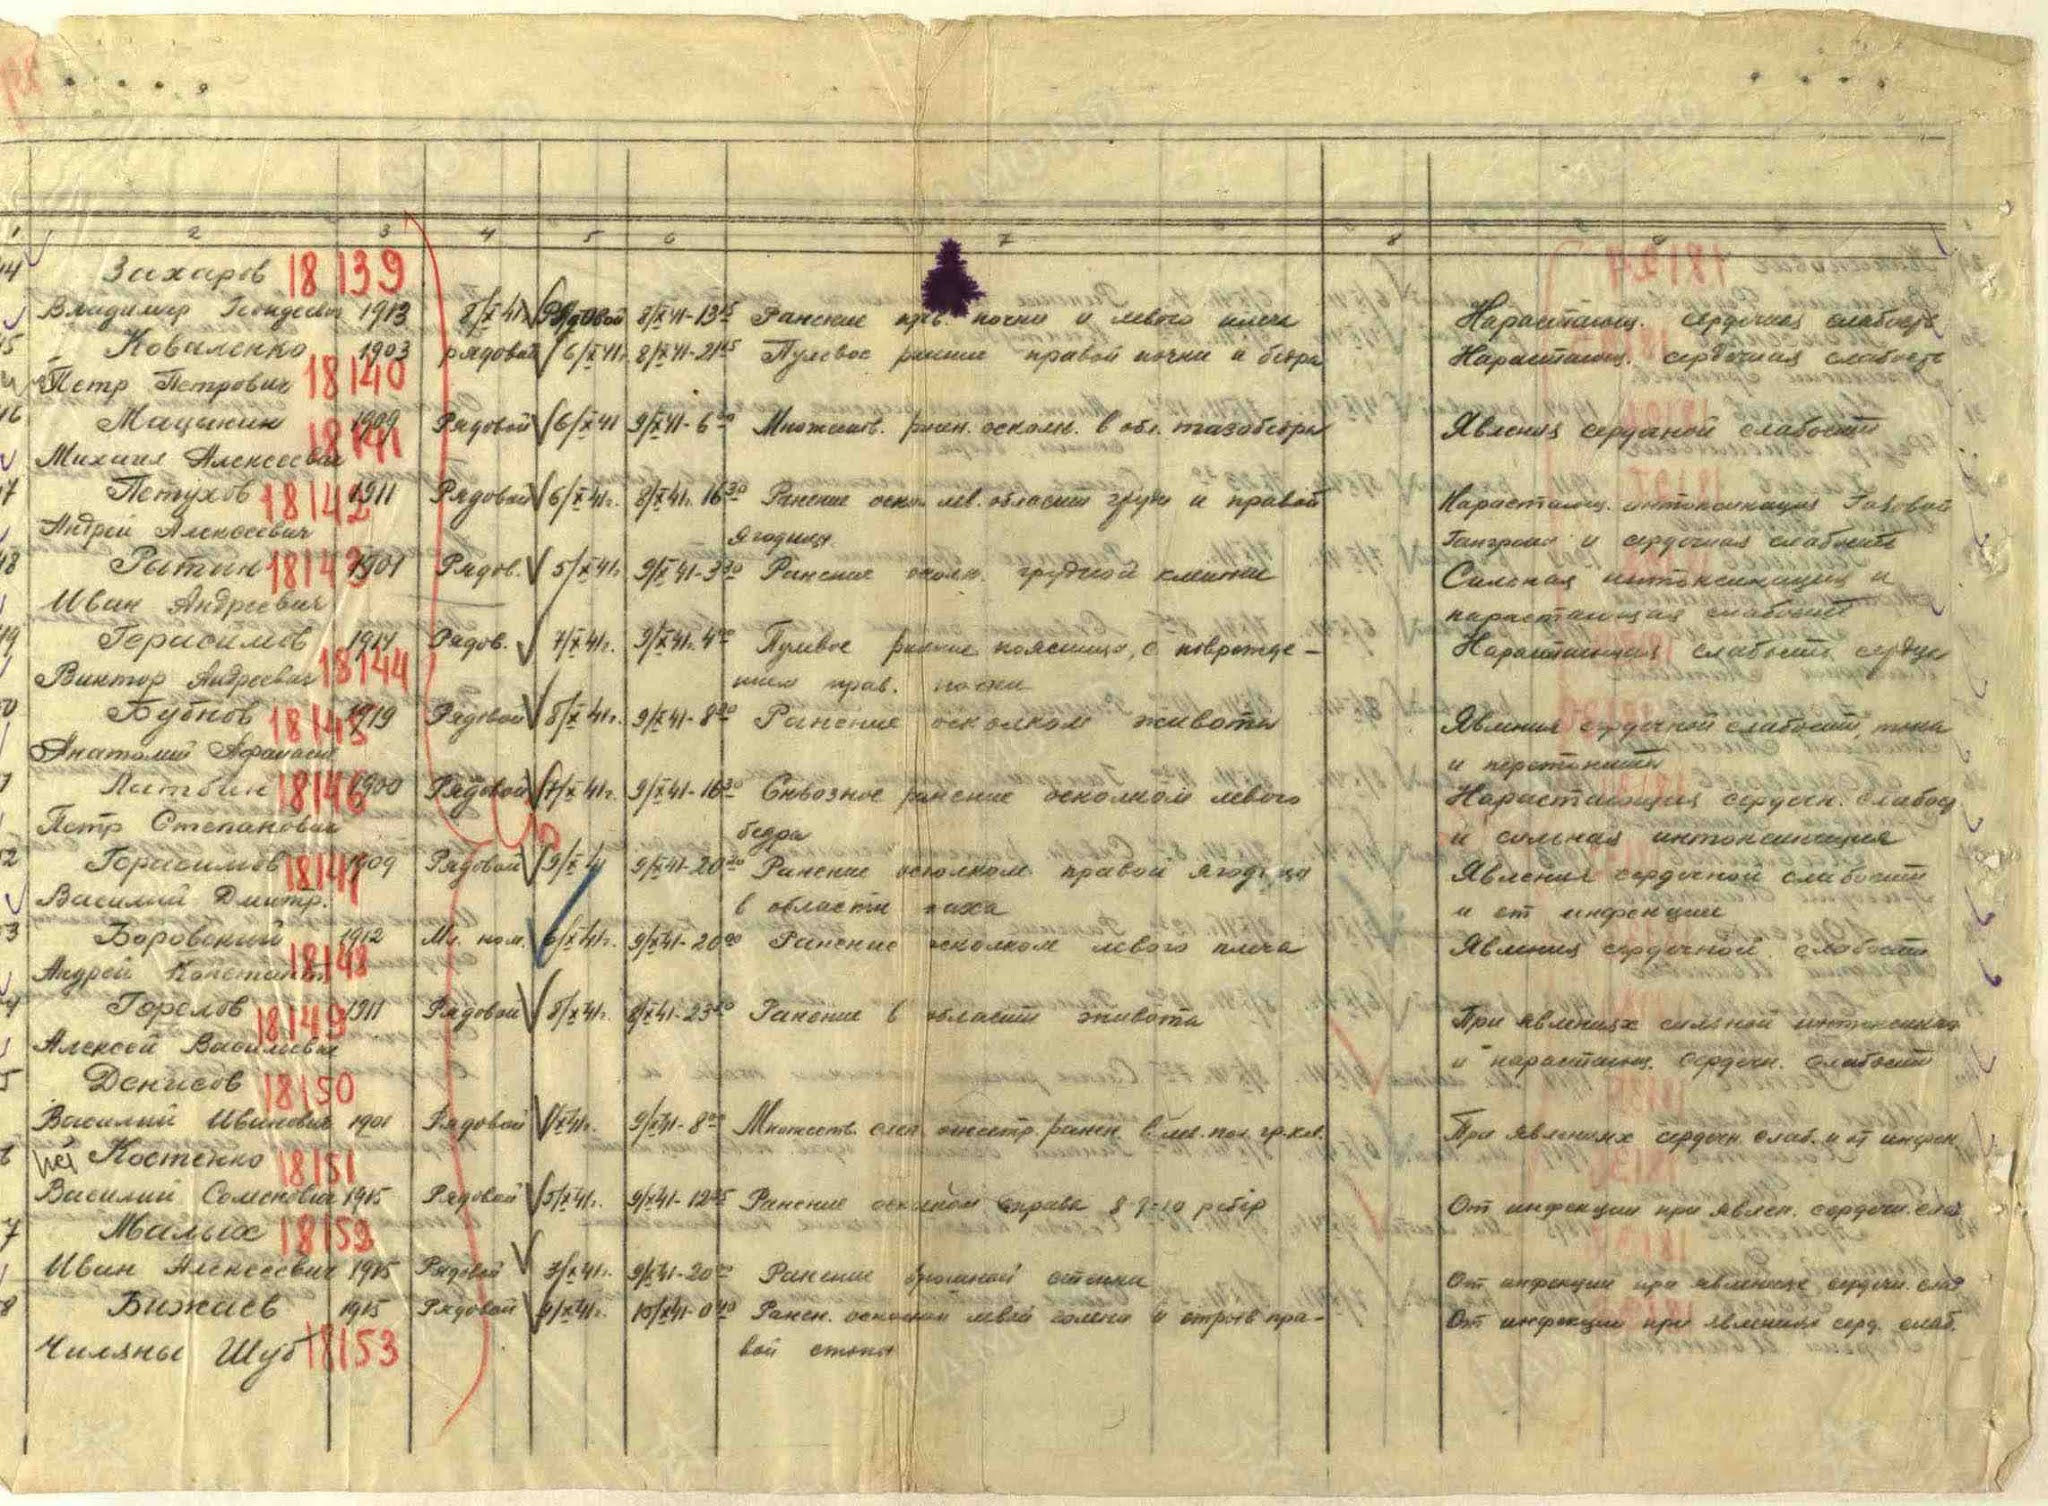 1 2 3 4 5 6 7 8 9
44 Захаров 18139
Владимир 1913 8/X 41 Рядовой 8/X 41-13 Ранение почки и левого плеча Нарастающ. сердечная слабость
45 Коваленко 1903 рядовой 6/X 41г. 8/X 41-21 45 Пулевое ранение правой почки и бедра Нарастающ. сердечная слабость
Петр Петрович 18140
46 Мацынин 1909 Рядовой 6/X 41 9/X 41-6 00 Множеств. ранен. осколк. в обл. тазобедра Явления сердечной слабости
Михаил Алексеевич 18141
47 Петухов 18142 1911 Рядовой 6/X 41г. 8/X 41г. 16 30 Ранение оскол. лев. области груди и правой Нарастающ. интоксикация Газовой
Андрей Алексеевич ягодицы Гангрена и сердечная слабость
48 Ратин 18143 1901 Рядов. 5/X 41г. 9/X 41-3 30 Ранение осколк. грудной клетки Сильная интоксикация и
Иван Андреевич нарастающая слабость
49 Герасимов 1917 Рядов. 7/X 41г. 9/X 41г. 4 00 Пулевое ранение поясницы, с поврежде- Нарастающая слабость сердца
Виктор Андреевич 18144 нием прав. почки
50 Бубнов 18145 1919 Рядовой 8/X 41г. 9/X 41-8 00 Ранение осколком живота Явления сердечной слабости,
Анатолий Афанасье и перитонита
Латбин 18146 1900 Рядовой 7/X 41г. 9/X 41-16 30 Сквозное ранение осколком левого Нарастающая сердечн. слабост
Петр Степанович бедра и сильная интоксикация
52 Герасимов 18147 1909 Рядовой 9/X 41 9/X 41-20 Ранение осколком правой ягодицы Явления сердечной слабости
Василий Дмитр. в области паха и от инфекции
53 Боровский 1912 Мл. ком. 6/X 41г. 9/X 41-20 Ранение осколком левого плеча Явления сердечной слабости
Андрей Константи 18148
54 Горелов 18149 1911 Рядовой 8/X 41г. 8/X 41-23 Ранение в области живота При явлениях сильной интоксикац
Алексей Васильевич и нарастающ. сердечн. слабости
55 Денисов 18150
Василий Иванович 1901 Рядовой X 41г. 9/X 41-8 00 Множеств. слеп. ранен. в лев. пол. гр. кл. При явлениях сердечн. слаб. и от инфек.
Костенко 18151
Василий Семенович 1915 Рядовой 5/X 41г. 9/X 41-12 Ранение осколком справа 8-9-10 ребер От инфекции при явлен. сердечн. слаб.
57 Малых 18152
Иван Алексеевич 1915 Рядовой 7/X 41г. 9/X 41-20 Ранение брюшной стенки От инфекции при явлениях сердечн. слаб
58 Бижаев 1915 Рядовой 9/X 41г. 10/X 41-0 Ранен. осколком левой голени и прa- От инфекции при явлениях серд. слаб.
Чиляны Шуб 18153 вой стопы